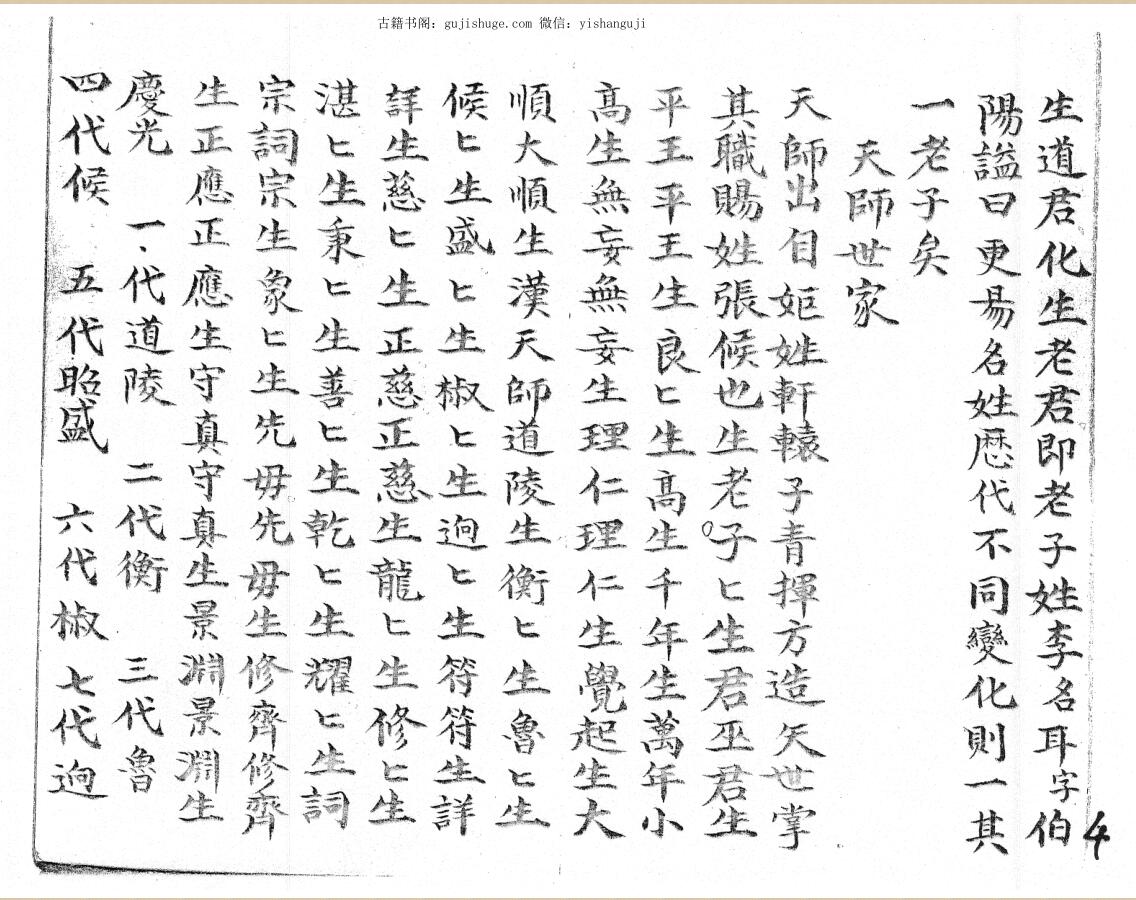 古籍书阁：gujishuge.com 微信：yishanguji
生道君化生老君即老子姓李名耳字伯
陽謚曰更易名姓歷代不同變化則一其
一老子矣
天師世家
天師出自姬姓軒轅子青揮方造矢世掌
其職賜姓張候也生老子匕生君巫君生
平王平王生良匕生高生千年生萬年小
高生無妄無妄生理仁理仁生覺起生大
順大順生漢天師道陵生衡匕生魯匕生
候匕生盛匕生椒匕生逈匕生符符生詳
詳生慈匕生正慈正慈生龍匕生修匕生
湛匕生秉匕生善匕生乾匕生耀匕生詞
宗詞宗生象匕生先毋先毋生修齊修齊
生正應正應生守真守真生景淵景淵生
慶光 一、代道陵 二代衡 三代魯
四代候 五代昭盛 六代椒 七代逈
4